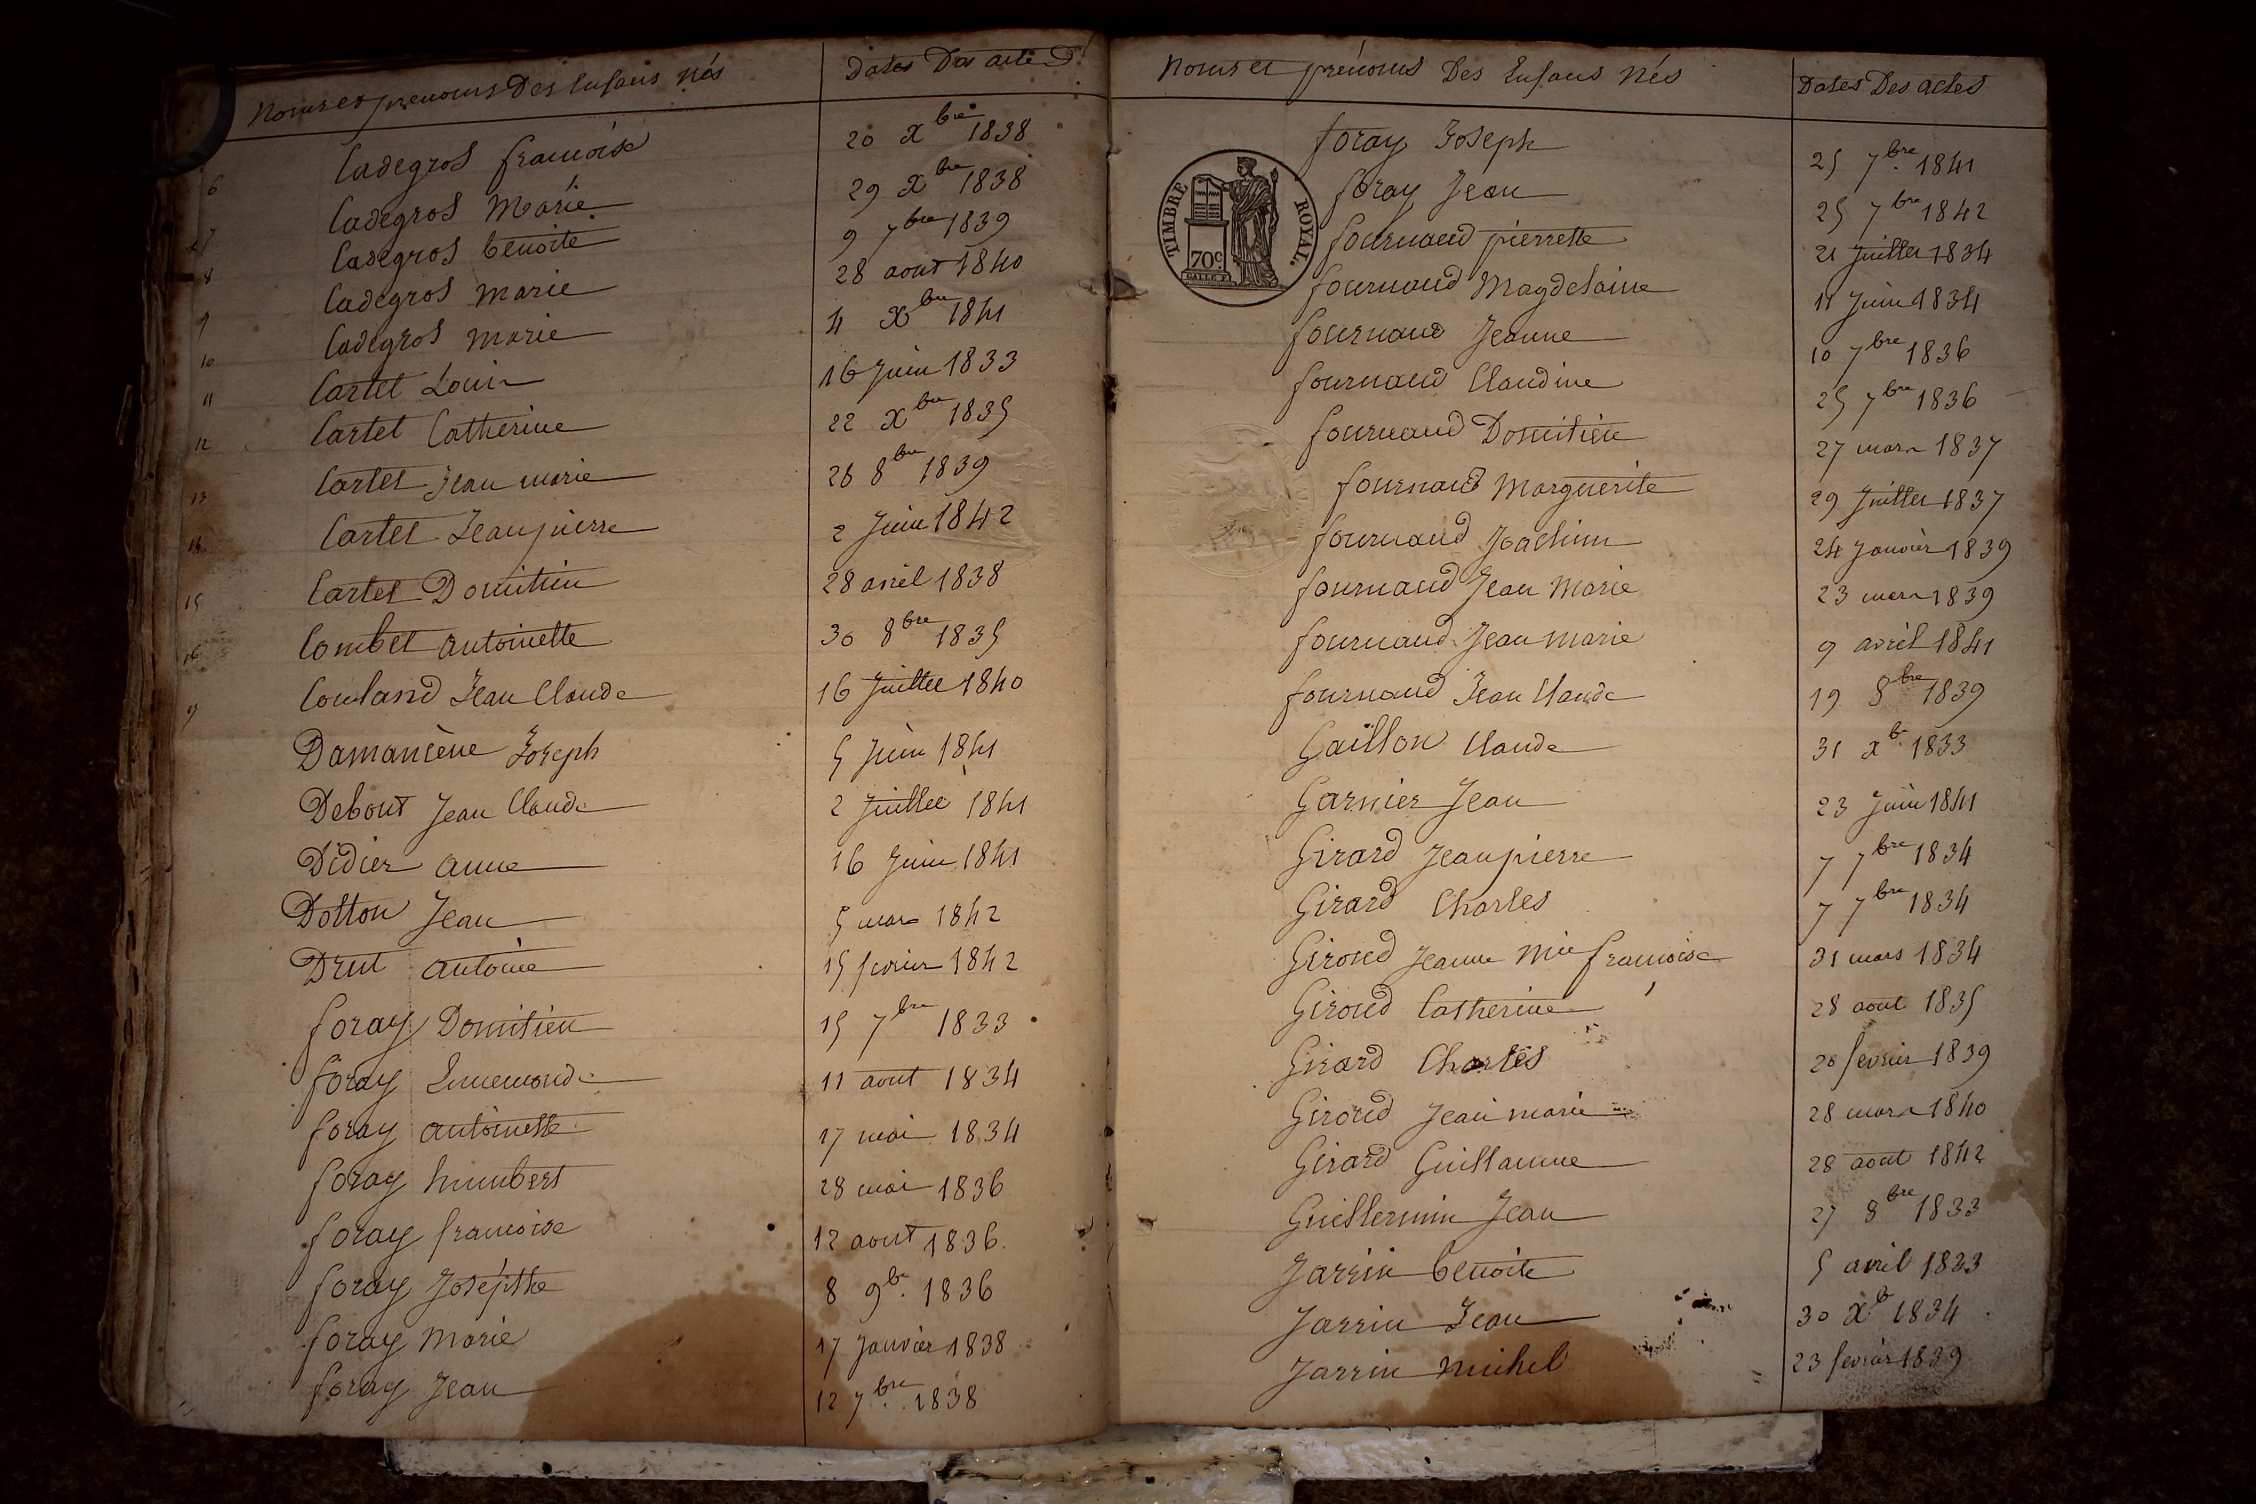 Noms et prenoms Des Enfans Nés Dates Des actes
6 Cadegros francoise 20 Xbre 1838
7 Cadegros Marie 29 Xbre 1838
8 Cadegros benoite 9 7bre 1839
9 Cadegros Marie 28 aout 1840
10 Cadegros Marie 4 Xbre 1841
11 Cartet Louis 16 Juin 1833
12 Cartet Catherine 22 Xbre 1835
13 Cartet Jean marie 26 8bre 1839
14 Cartet Jean pierre 2 Juin 1842
15 Cartet Domitien 28 avril 1838
16 Combet antoinette 30 8bre 1835
Couland Jean Claude 16 Juillet 1840
Damancène Joseph 5 Juin 1841
Debout Jean Claude 2 Juillet 1841
Didier anne 16 Juin 1841
Dotton Jean 5 mars 1842
Drut antoine 15 fevrier 1842
foray Domitien 15 7bre 1833
foray Ennemonde 11 aout 1834
foray antoinette 17 mai 1834
foray humbert 28 mai 1836
foray francoise 12 aout 1836
foray Josepthe 8 9b. 1836
foray Marie 17 Janvier 1838
foray Jean 12 7bre 1838
Noms et prénoms Des Enfans Nés Dates Des actes
TIMBRE ROYAL.
70c
foray Joseph 25 7bre 1841
foray Jean 25 7bre 1842
fournand pierrette 21 Juillet 1834
fournand Magdelaine 11 Juin 1834
fournand Jeanne 10 7bre 1836
fournand Claudine 25 7bre 1836
fournand Domitien 27 mars 1837
fournand Marguerite 29 Juillet 1837
fournand Joachim 24 Janvier 1839
fournand Jean Marie 23 mars 1839
fournand Jean marie 9 avril 1841
fournand Jean Claude 19 8bre 1839
Gaillon Claude 31 Xb. 1833
Garnier Jean 23 Juin 1841
Girard Jean pierre 7 7bre 1834
Girard Charles 7 7bre 1834
Giroud Jeanne Mie francoise 31 mars 1834
Giroud Catherine 28 aout 1835
Girard Charles 20 fevrier 1839
Giroud Jean marie 28 mars 1840
Girard Guillaume 28 aout 1842
Guillermin Jean 27 8bre 1833
Jarrin benoite 5 avril 1833
Jarrin Jean 30 Xb 1834
Jarrin Michel 23 fevrier 1839